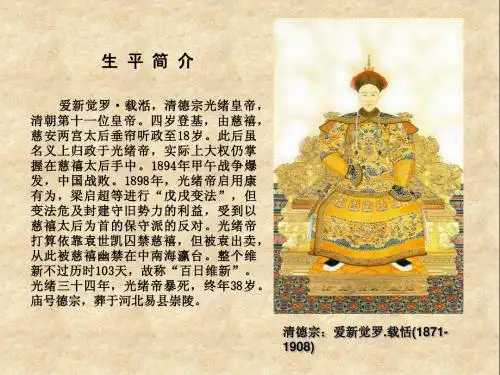 生 平 简 介
爱新觉罗·载湉，清德宗光绪皇帝，
清朝第十一位皇帝。四岁登基，由慈禧，
慈安两宫太后垂帘听政至18岁。此后虽
名义上归政于光绪帝，实际上大权仍掌
握在慈禧太后手中。1894年甲午战争爆
发，中国战败。1898年，光绪帝启用康
有为，梁启超等进行“戊戌变法”，但
变法危及封建守旧势力的利益，受到以
慈禧太后为首的保守派的反对。光绪帝
打算依靠袁世凯囚禁慈禧，但被袁出卖，
从此被慈禧幽禁在中南海瀛台。整个维
新不过历时103天，故称“百日维新”。
光绪三十四年，光绪帝暴死，终年38岁。
庙号德宗，葬于河北易县崇陵。
清德宗：爱新觉罗.载恬(1871-
1908)